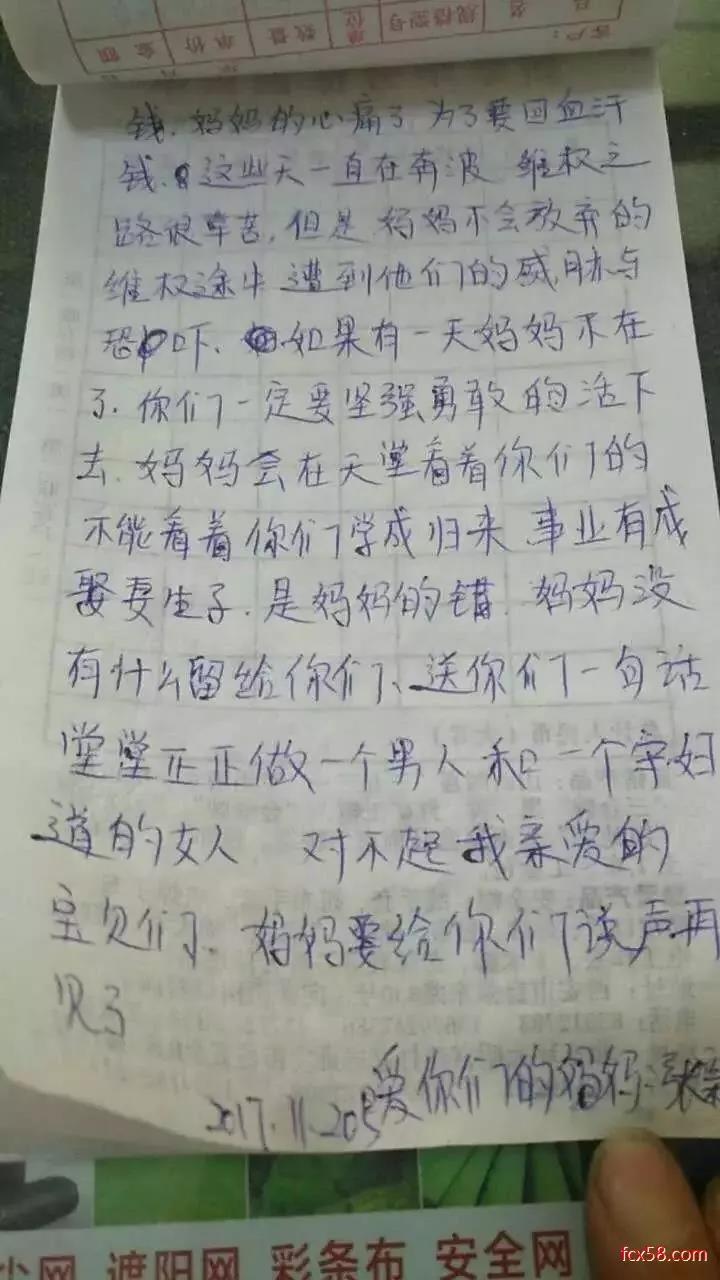 客户：
规格型号 单位 数量 单价 金额
钱.妈妈的心痛了为了要回血汗
钱.这些天一直在奔波 维权之
路很辛苦,但是 妈妈不会放弃的
维权途中 遭到他们的威胁与
恐吓、如果有一天妈妈不在
了.你们一定要坚强勇敢的活下
去.妈妈会在天堂看着你们的
不能看着你们学成归来 事业有成
娶妻生子.是妈妈的错.妈妈没
有什么留给你们、送你们一句话
堂堂正正做一个男人和一个守妇
道的女人 对不起我亲爱的
宝贝们、妈妈要给你们说声再
见了
爱你们的妈妈:张
2017.11.20
遮阳网 彩条布 安全网
fcx58.com